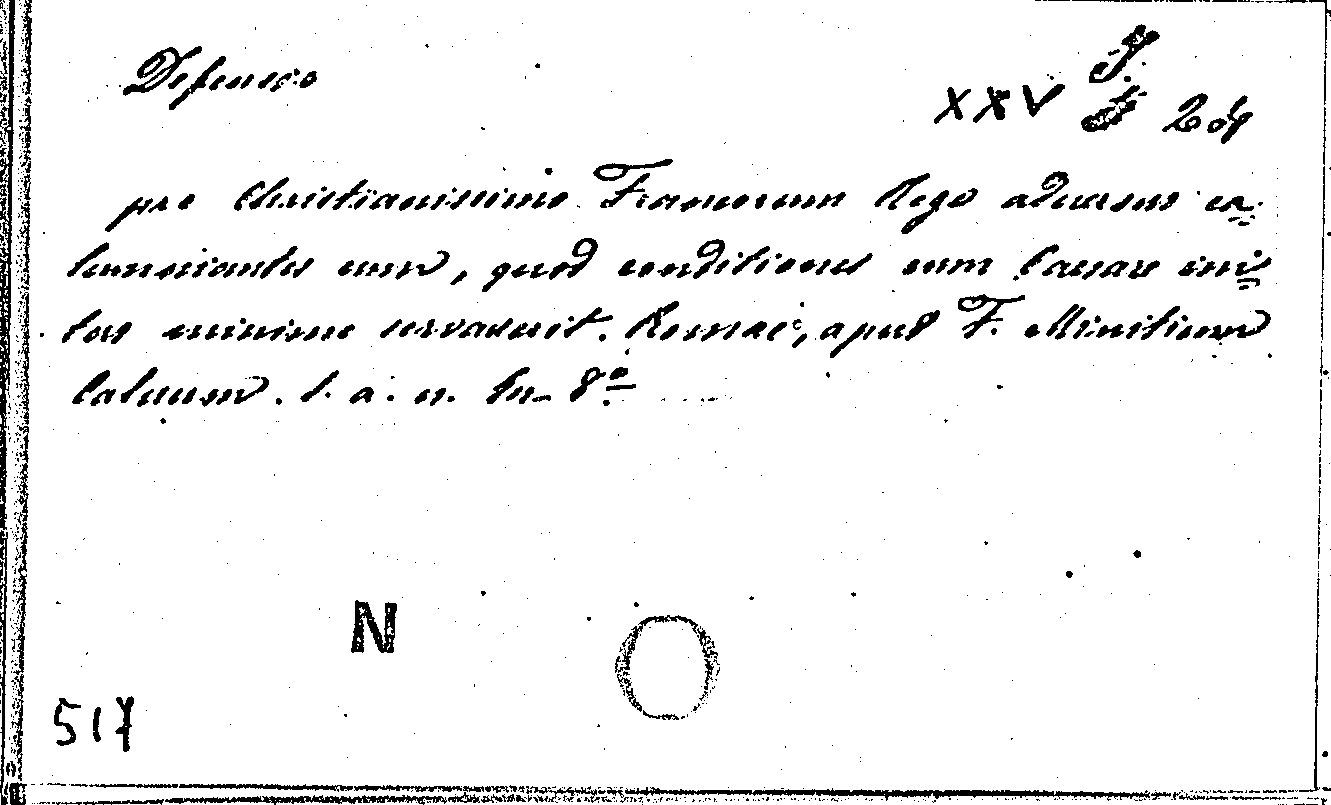 Defensio
J.
XXV 28
pro Christianissimo Francorum Rege adversus ca=
lumniantes eum, quod conditiones cum Caesare ini=
tas minime servaverit. Romae, apud F. Minitium
Calvum. s. a. n. In 8º
N
517